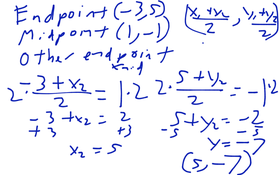 Endpoint (-3,5) (x₁+x₂/2, y₁+y₂/2)
Midpoint (1,-1)
Other endpoint
xmid
2·-3+x₂/2=1·2 2·5+y₂/2=-1·2
-3+x₂=2 5+y₂=-2
+3 +3 -5 -5
x₂=5 y=-7
(5,-7)